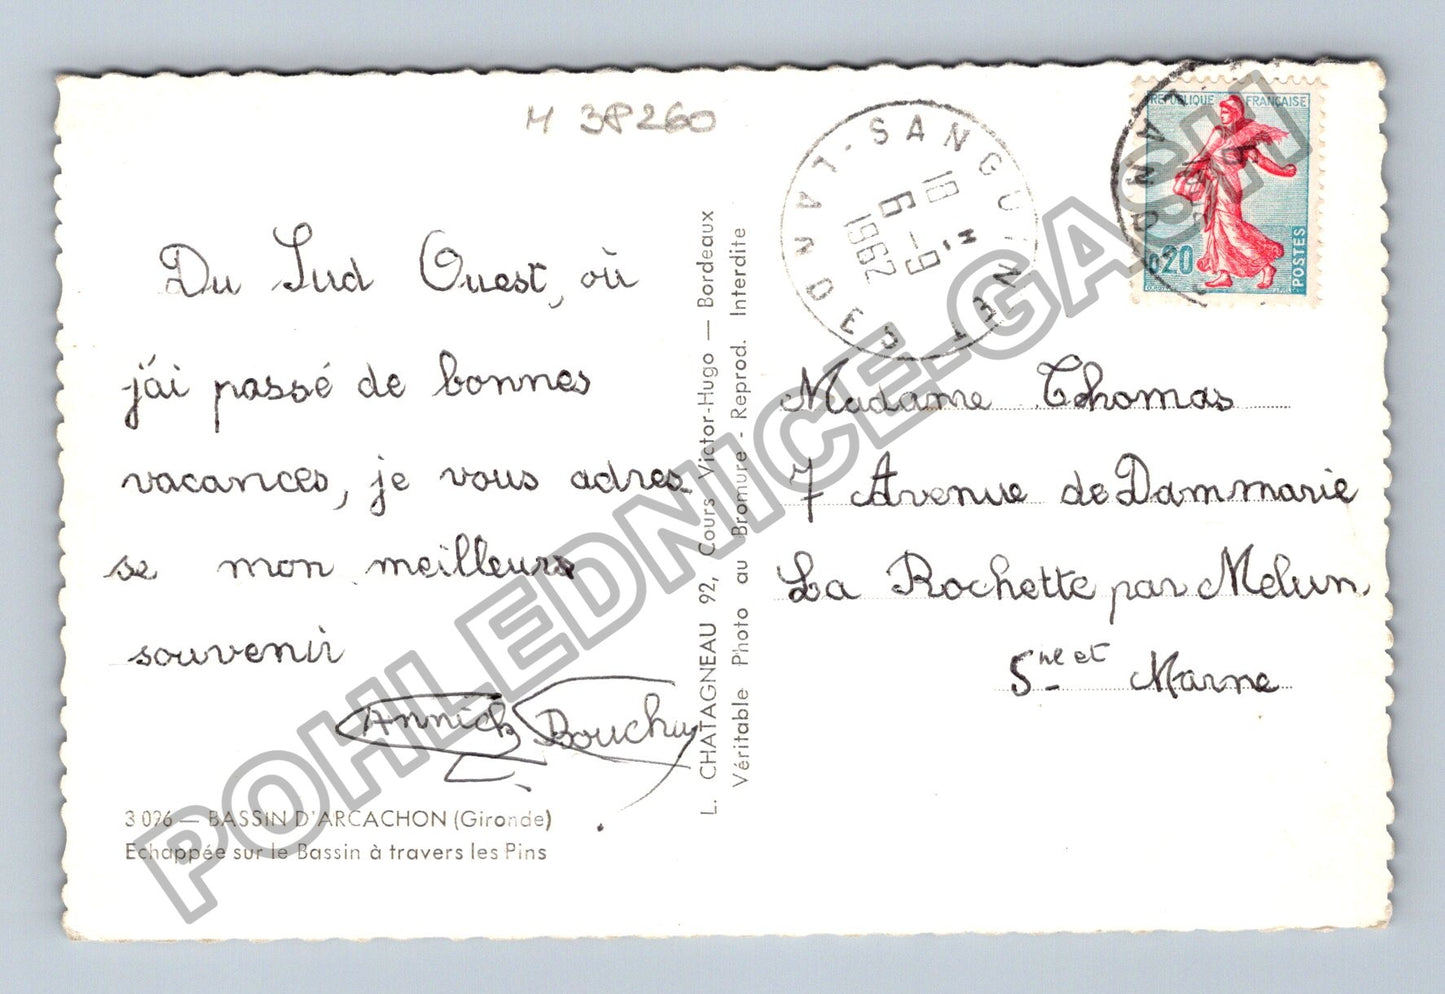 M 38260
Du Sud Ouest, où
j'ai passé de bonnes
vacances, je vous adres-
se mon meilleurs
souvenir
Annick Bouchuy
3 096 — BASSIN D'ARCACHON (Gironde)
Echappée sur le Bassin à travers les Pins
L. CHATAGNEAU 92, Cours Victor-Hugo — Bordeaux
Véritable Photo au Bromure - Reprod. Interdite
SANGUINET
LANDES
18 H
6 - 9
1962
REPUBLIQUE FRANÇAISE
0,20
POSTES
Madame Thomas
7 Avenue de Dammarie
La Rochette par Melun
Sne et Marne
POHLEDNICE-GASH